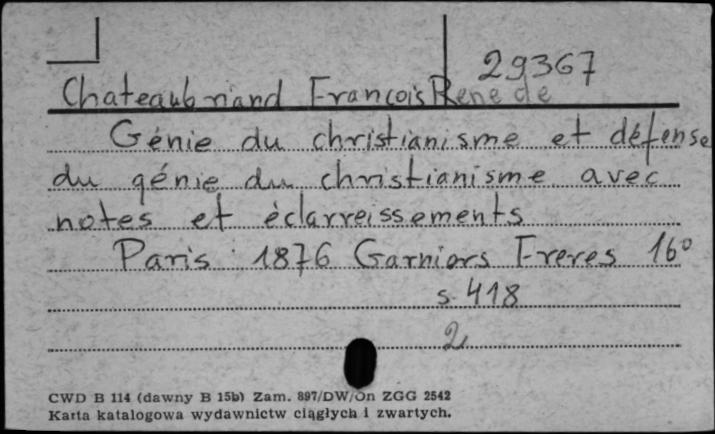 29367
Chateaubriand François Rene de
Génie du christianisme et défense
du génie du christianisme avec
notes et éclarreissements
Paris 1876 Garniers Freres 16°
s. 418
2
CWD B 114 (dawny B 15b) Zam. 897/DW/On ZGG 2542
Karta katalogowa wydawnictw ciągłych i zwartych.